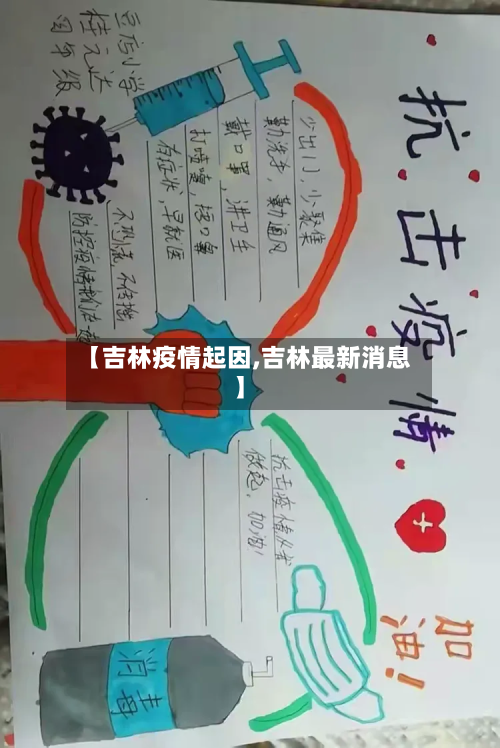 抗击疫情
加油！
豆店小学
桂元达
四年级
少出门，少聚集
勤洗手，勤通风
戴口罩，讲卫生
打喷嚏，捂口鼻
有症状，早就医
不刑谎 不传谣
防控疫情我们在
【吉林疫情起因,吉林最新消息
】
抗击疫情从我
做起，加油！
消毒